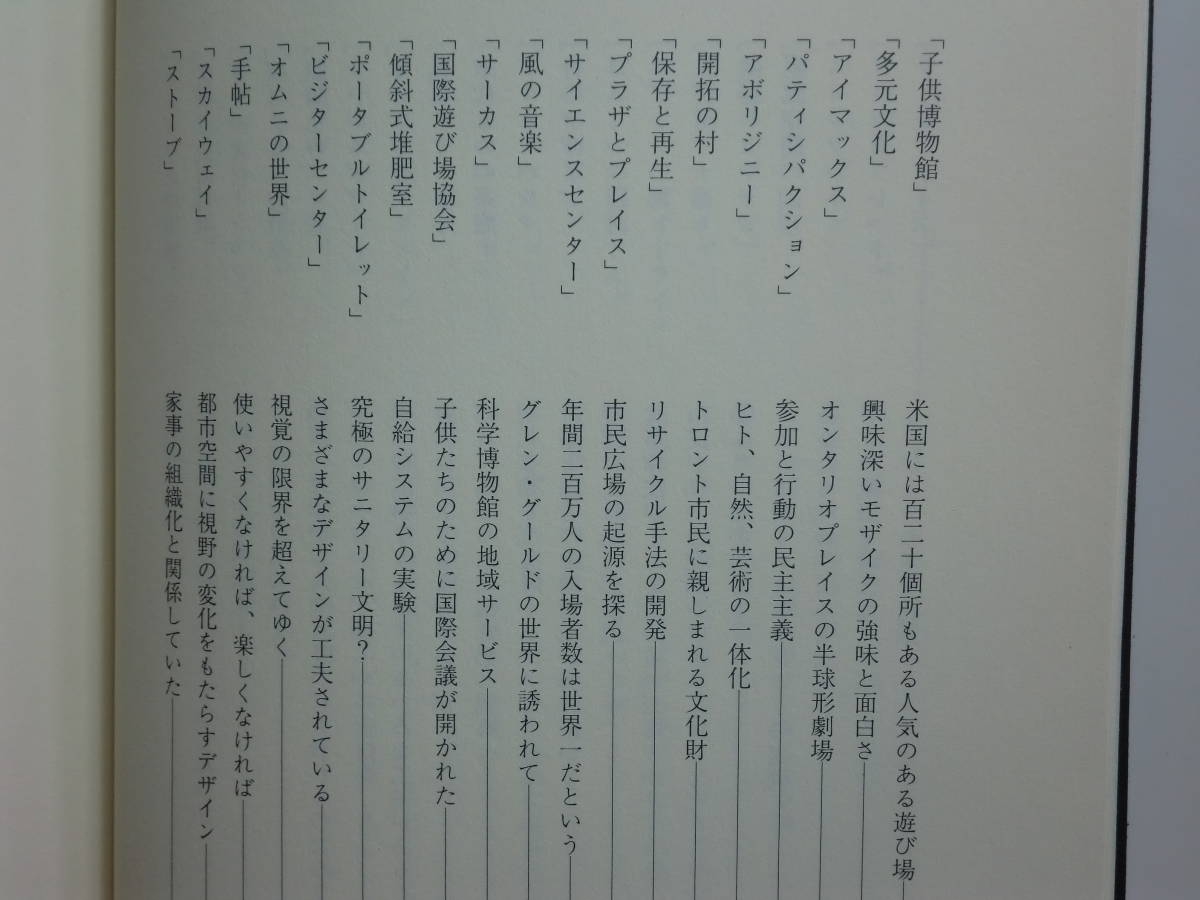 「子供博物館」 米国には百二十個所もある人気のある遊び場
「多元文化」 興味深いモザイクの強味と面白さ
「アイマックス」 オンタリオプレイスの半球形劇場
「パティシパクション」 参加と行動の民主主義
「アボリジニー」 ヒト、自然、芸術の一体化
「開拓の村」 トロント市民に親しまれる文化財
「保存と再生」 リサイクル手法の開発
「プラザとプレイス」 市民広場の起源を探る
「サイエンスセンター」 年間二百万人の入場者数は世界一だという
「風の音楽」 グレン・グールドの世界に誘われて
「サーカス」 科学博物館の地域サービス
「国際遊び場協会」 子供たちのために国際会議が開かれた
「傾斜式堆肥室」 自給システムの実験
「ポータブルトイレット」 究極のサニタリー文明？
「ビジターセンター」 さまざまなデザインが工夫されている
「オムニの世界」 視覚の限界を超えてゆく
「手帖」 使いやすくなければ、楽しくなければ
「スカイウェイ」 都市空間に視野の変化をもたらすデザイン
「ストーブ」 家事の組織化と関係していた